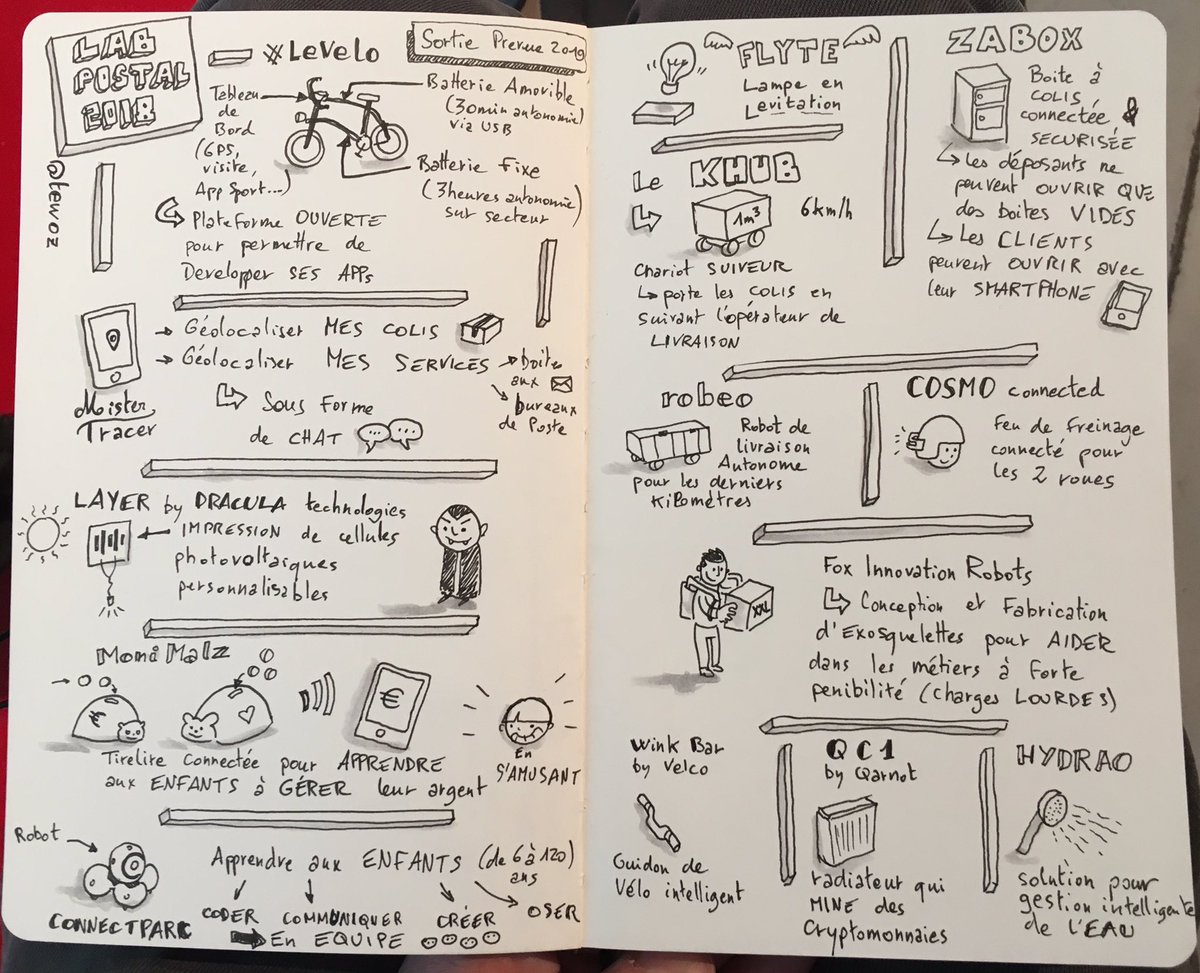 LAB
POSTAL
2018
@tewoz
#LeVelo
Sortie Prevue 2019
Tableau
de
Bord
(GPS,
visite,
App Sport...)
Batterie Amovible
(30min autonomie)
via USB
Batterie fixe
(3heures autonomie)
sur secteur
Plateforme OUVERTE
pour permettre de
Developper SES APPs
Mister
Tracer
→ Géolocaliser MES COLIS
→ Géolocaliser MES SERVICES
→ boites
aux
bureaux
de Poste
Sous forme
de CHAT
LAYER by DRACULA technologies
IMPRESSION de cellules
photovoltaïques
personnalisables
Moni Malz
€
€
Tirelire Connectée pour APPRENDRE
aux ENFANTS à GÉRER leur argent
En
S'AMUSANT
Robot
CONNECTPARC
Apprendre aux ENFANTS (de 6 à 120)
ans
CODER COMMUNIQUER CRÉER OSER
En EQUIPE
FLYTE
Lampe en
Levitation
Le KHUB
1m³
6km/h
Chariot SUIVEUR
↳ porte les COLIS en
suivant l'opérateur de
LIVRAISON
ZABOX
Boite à
COLIS
connectée &
SECURISÉE
↳ Les déposants ne
peuvent OUVRIR QUE
des boites VIDES
↳ Les CLIENTS
peuvent OUVRIR avec
leur SMARTPHONE
robeo
Robot de
livraison
Autonome
pour les derniers
KilOmètres
COSMO connected
Feu de freinage
connecté pour
les 2 roues
XXL
Fox Innovation Robots
Conception et Fabrication
d'Exosquelettes pour AIDER
dans les métiers à forte
penibilité (charges LOURDES)
Wink Bar
by Velco
Guidon de
Vélo intelligent
QC1
by Qarnot
radiateur qui
MINE des
Cryptomonnaies
HYDRAO
solution pour
gestion intelligente
de l'EAU